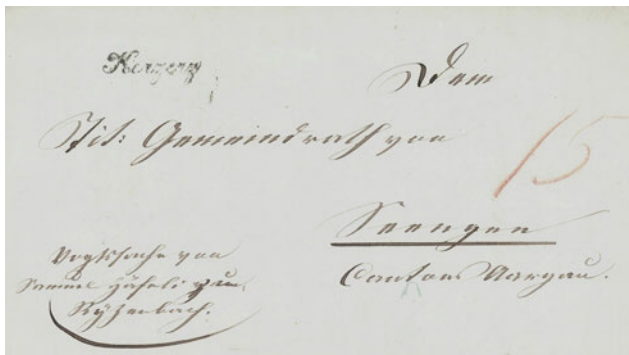 Kerzerz
Dem
Tit: Gemeindrath von
15
Seengen
Canton Aargau.
Vogtssache von
Samuel Häfeli zu
Ryzenbach.